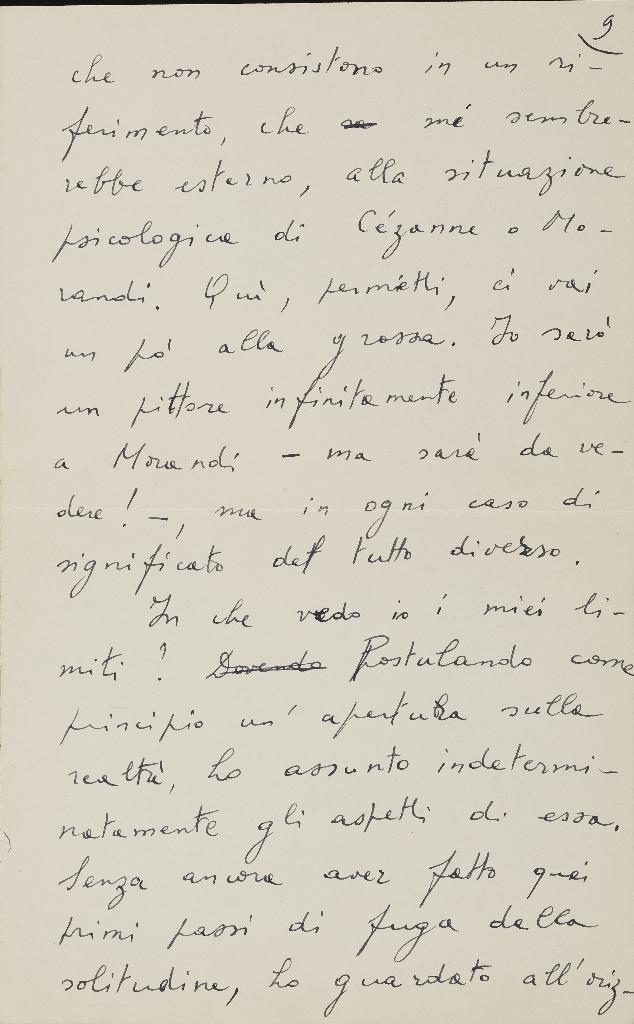 9
che non consistono in un ri-
ferimento, che se mé sembre-
rebbe esterno, alla situazione
psicologica di Cézanne o Mo-
randi. Quì, permetti, ci vai
un pó alla grossa. Io sarò
un pittore infinitamente inferiore
a Morandi - ma sarà da ve-
dere! -, ma in ogni caso di
significato del tutto diverso.
In che vedo io i miei li-
miti? Dovendo Postulando come
principio un' apertura sulla
realtà, ho assunto indetermi-
natamente gli aspetti di essa.
Senza ancora aver fatto quei
primi passi di fuga dalla
solitudine, ho guardato all'oriz-